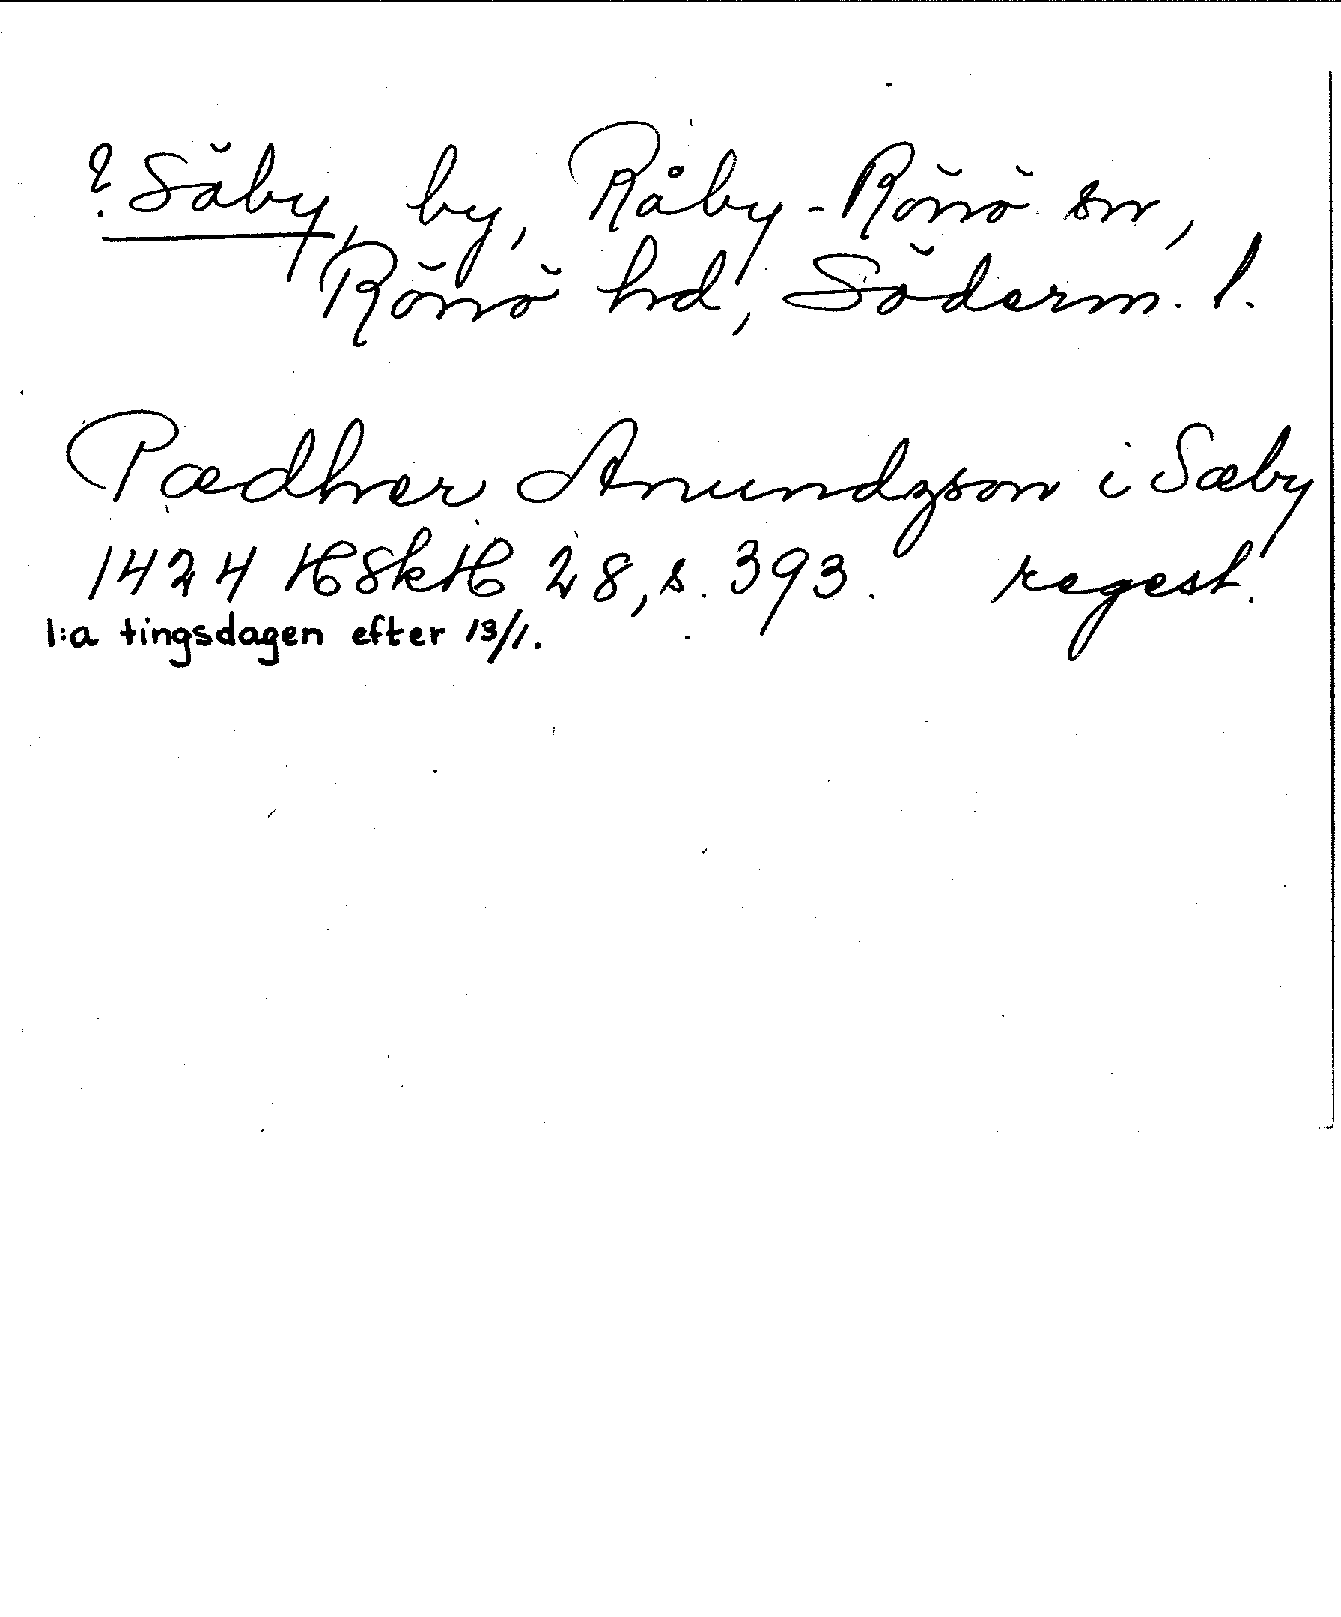 ? Säby, by, Råby-Rönö sn,
Rönö hd, Söderm. l.
Pædher Anundzson i Sæby
1424 HSkH 28, s. 393. regest.
1:a tingsdagen efter 13/1.